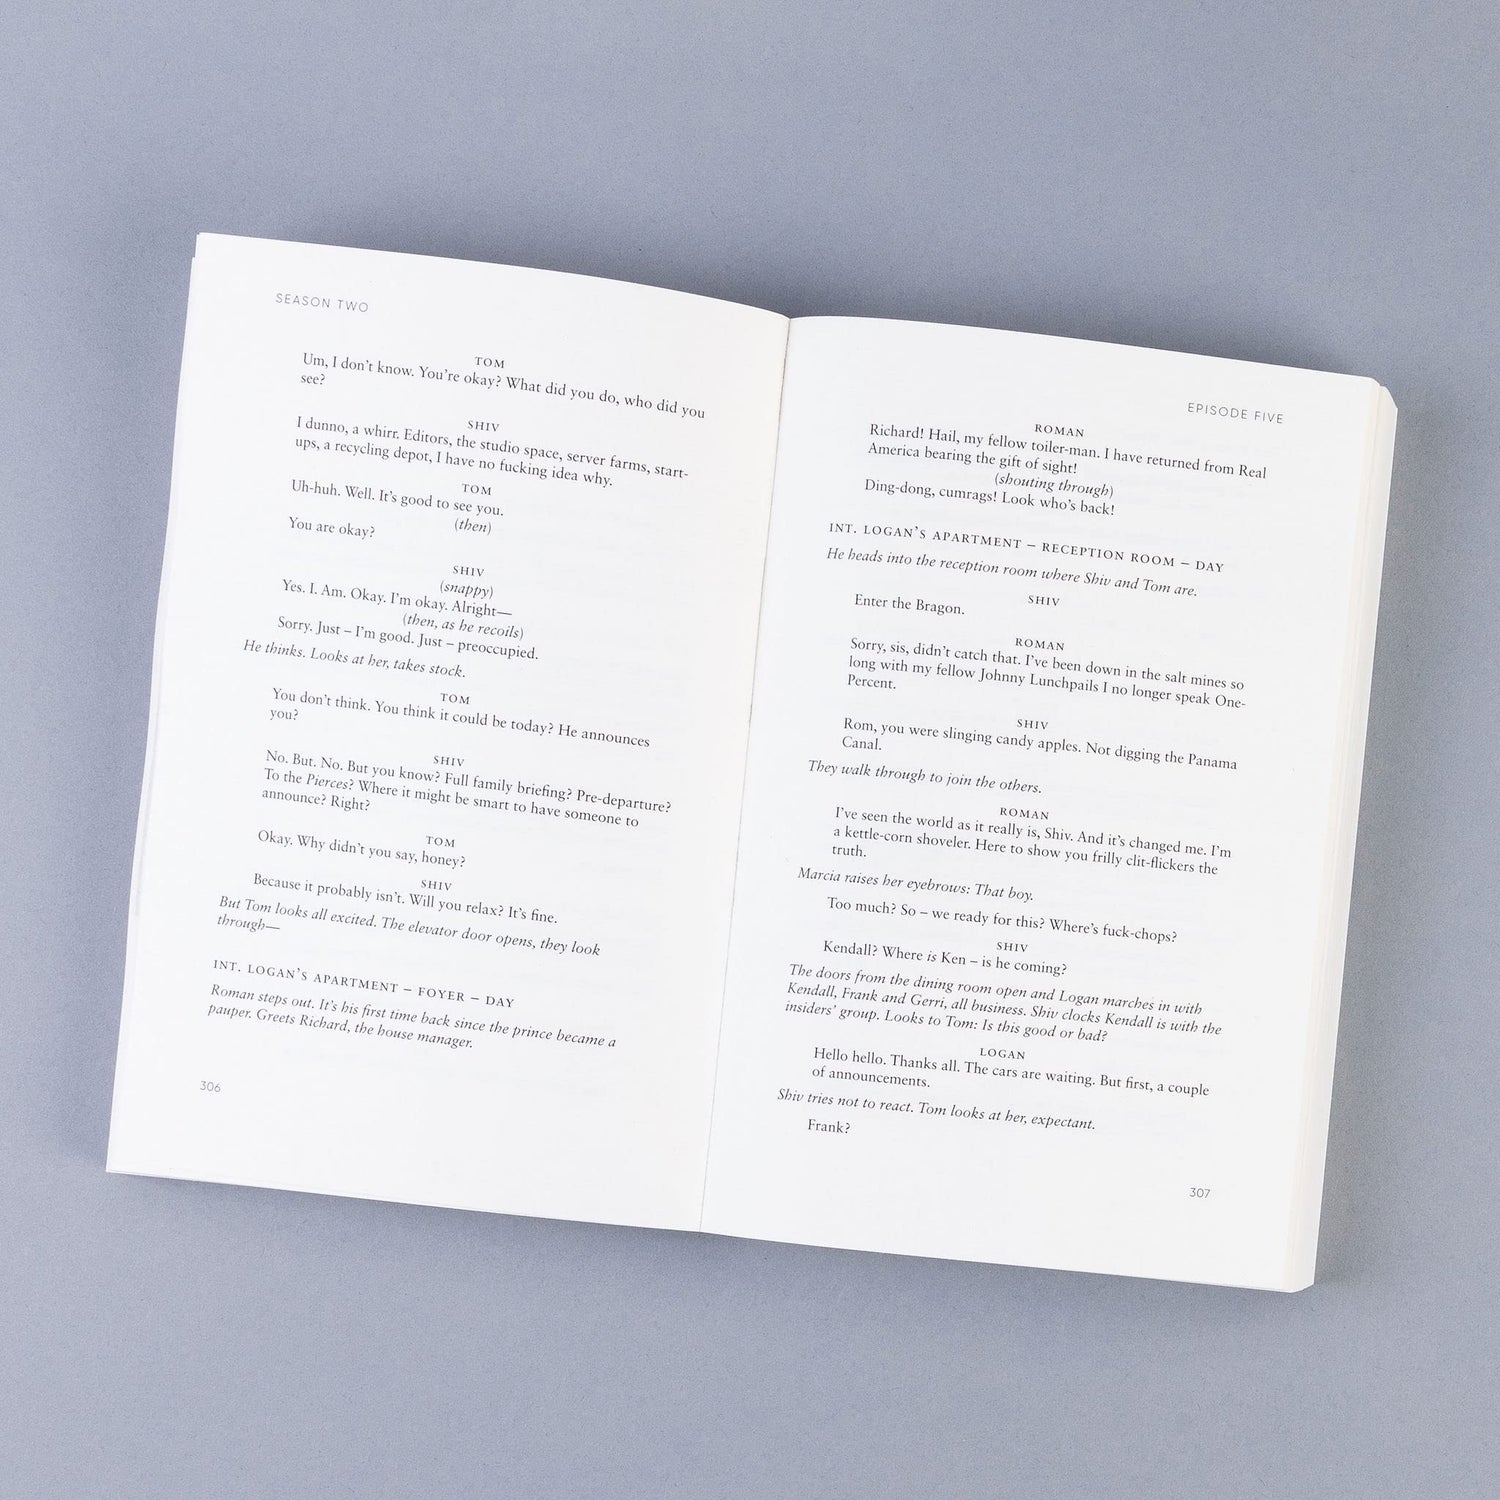 SEASON TWO
TOM
Um, I don't know. You're okay? What did you do, who did you
see?
SHIV
I dunno, a whirr. Editors, the studio space, server farms, start-
ups, a recycling depot, I have no fucking idea why.
TOM
Uh-huh. Well. It's good to see you.
(then)
You are okay?
SHIV
(snappy)
Yes. I. Am. Okay. I'm okay. Alright—
(then, as he recoils)
Sorry. Just – I'm good. Just – preoccupied.
He thinks. Looks at her, takes stock.
TOM
You don't think. You think it could be today? He announces
you?
SHIV
No. But. No. But you know? Full family briefing? Pre-departure?
To the Pierces? Where it might be smart to have someone to
announce? Right?
TOM
Okay. Why didn't you say, honey?
SHIV
Because it probably isn't. Will you relax? It's fine.
But Tom looks all excited. The elevator door opens, they look
through—
INT. LOGAN'S APARTMENT – FOYER – DAY
Roman steps out. It's his first time back since the prince became a
pauper. Greets Richard, the house manager.
306
EPISODE FIVE
ROMAN
Richard! Hail, my fellow toiler-man. I have returned from Real
America bearing the gift of sight!
(shouting through)
Ding-dong, cumrags! Look who's back!
INT. LOGAN'S APARTMENT – RECEPTION ROOM – DAY
He heads into the reception room where Shiv and Tom are.
SHIV
Enter the Bragon.
ROMAN
Sorry, sis, didn't catch that. I've been down in the salt mines so
long with my fellow Johnny Lunchpails I no longer speak One-
Percent.
SHIV
Rom, you were slinging candy apples. Not digging the Panama
Canal.
They walk through to join the others.
ROMAN
I've seen the world as it really is, Shiv. And it's changed me. I'm
a kettle-corn shoveler. Here to show you frilly clit-flickers the
truth.
Marcia raises her eyebrows: That boy.
Too much? So – we ready for this? Where's fuck-chops?
SHIV
Kendall? Where is Ken – is he coming?
The doors from the dining room open and Logan marches in with
Kendall, Frank and Gerri, all business. Shiv clocks Kendall is with the
insiders' group. Looks to Tom: Is this good or bad?
LOGAN
Hello hello. Thanks all. The cars are waiting. But first, a couple
of announcements.
Shiv tries not to react. Tom looks at her, expectant.
Frank?
307